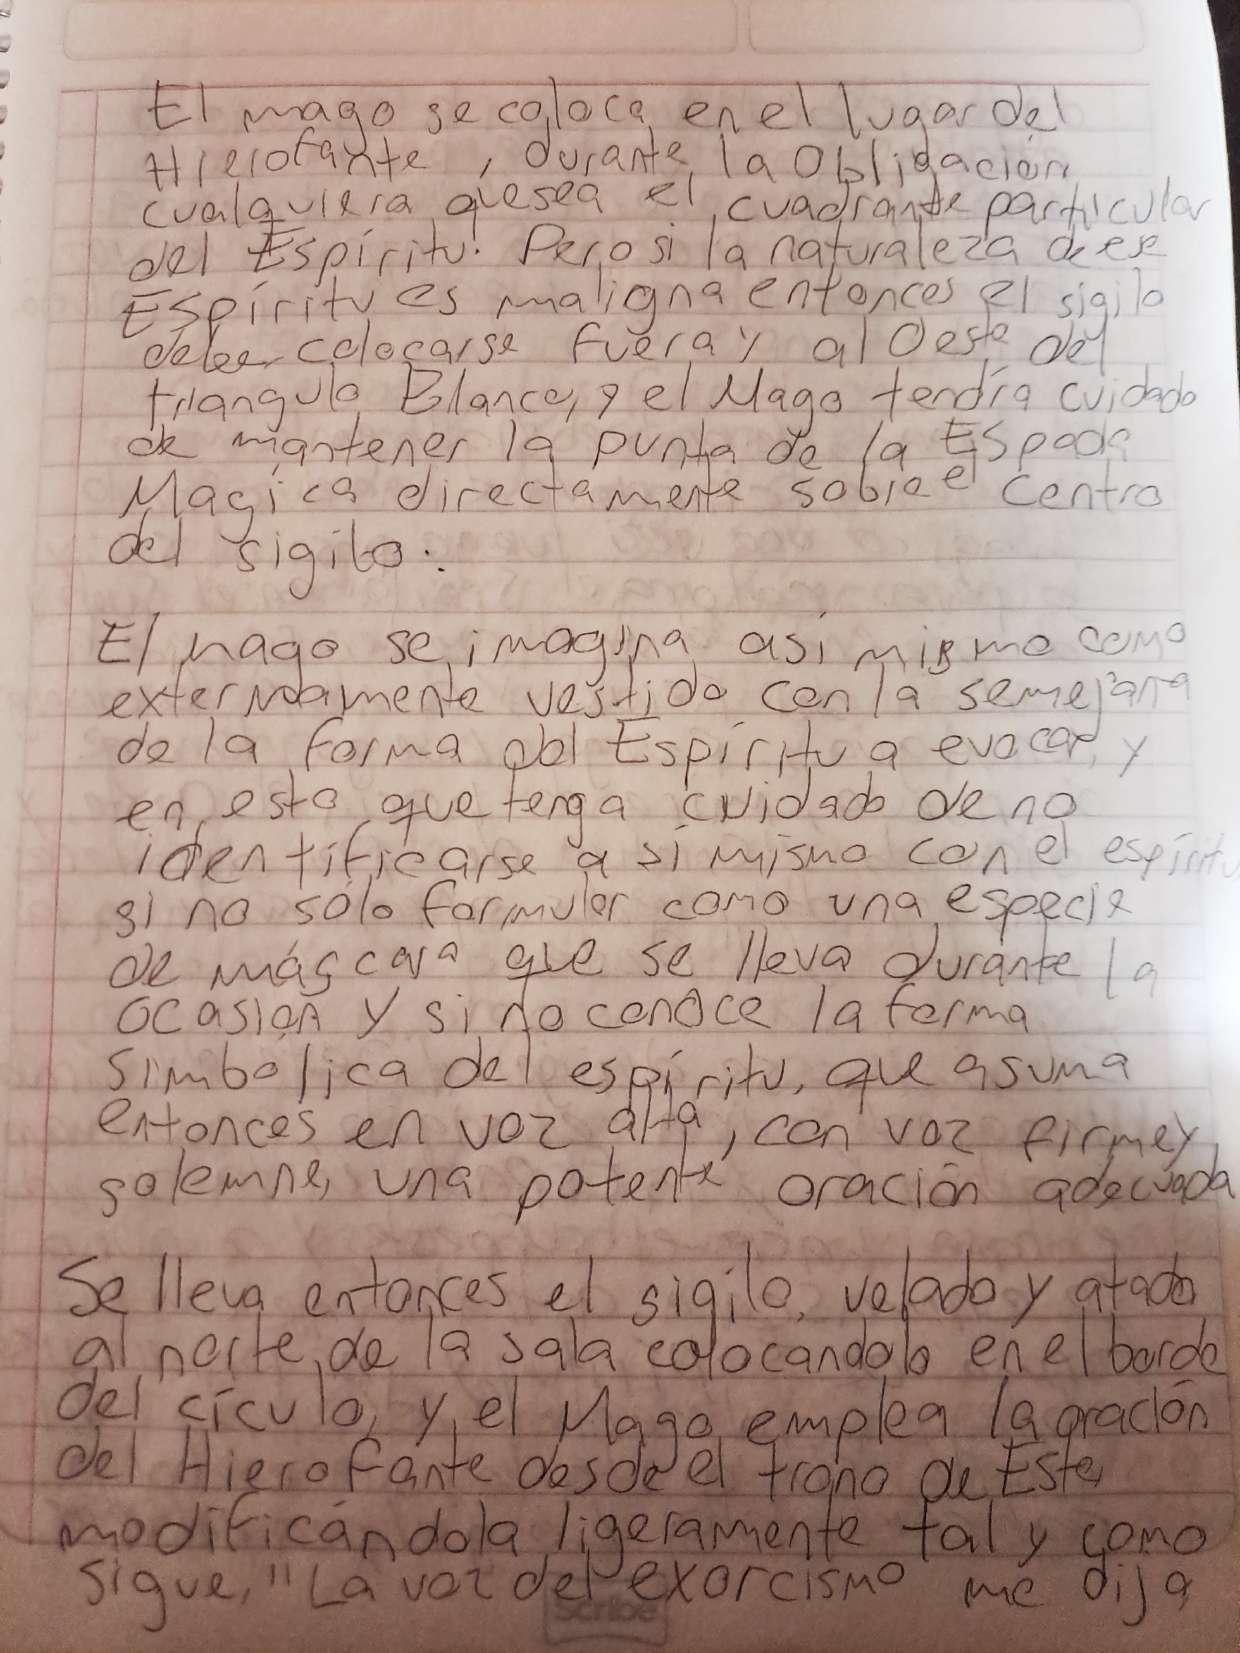 El mago se coloca en el lugar del
Hierofante, durante la Obligación
cualquiera que sea el cuadrante particular
del Espíritu. Pero si la naturaleza de ese
Espíritu es maligna entonces el sigilo
debe colocarse fuera y al Oeste del
triangulo Blanco, y el Mago tendría cuidado
de mantener la punta de la Espada
Magica directamente sobre el Centro
del sigilo.
El mago se imagina asi mismo como
externamente vestido con la semejana
de la forma del Espíritu a evocar, y
en esto que tenga cuidado de no
identificarse a sí mismo con el espíritu
si no sólo formular como una especie
de máscara que se lleva durante la
ocasión y si no conoce la forma
simbolica del espíritu, que asuma
entonces en voz alta, con voz firme y
solemne, una potente oración adecuada
Se lleva entonces el sigilo, velado y atado
al norte de la sala colocandolo en el borde
del cículo, y el Mago emplea la oración
del Hierofante desde el trono de Este,
modificándola ligeramente tal y como
sigue, "La voz del exorcismo me dija
Scribe